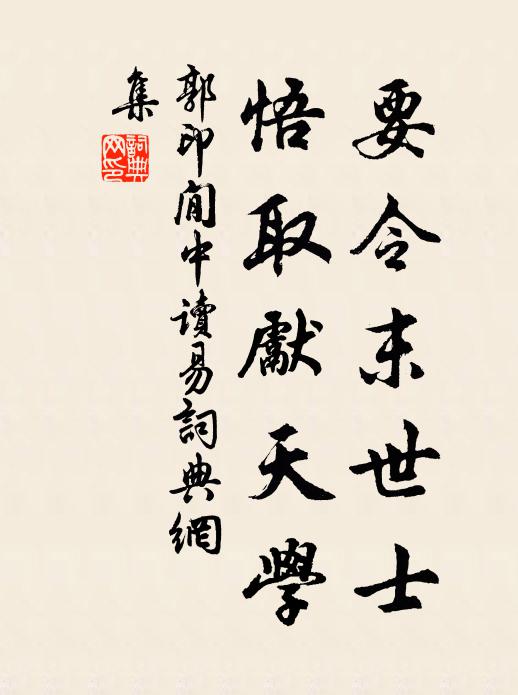 要令末世士
悟取獻天學
郭印閒中讀易詞典網
集
詞典
网印